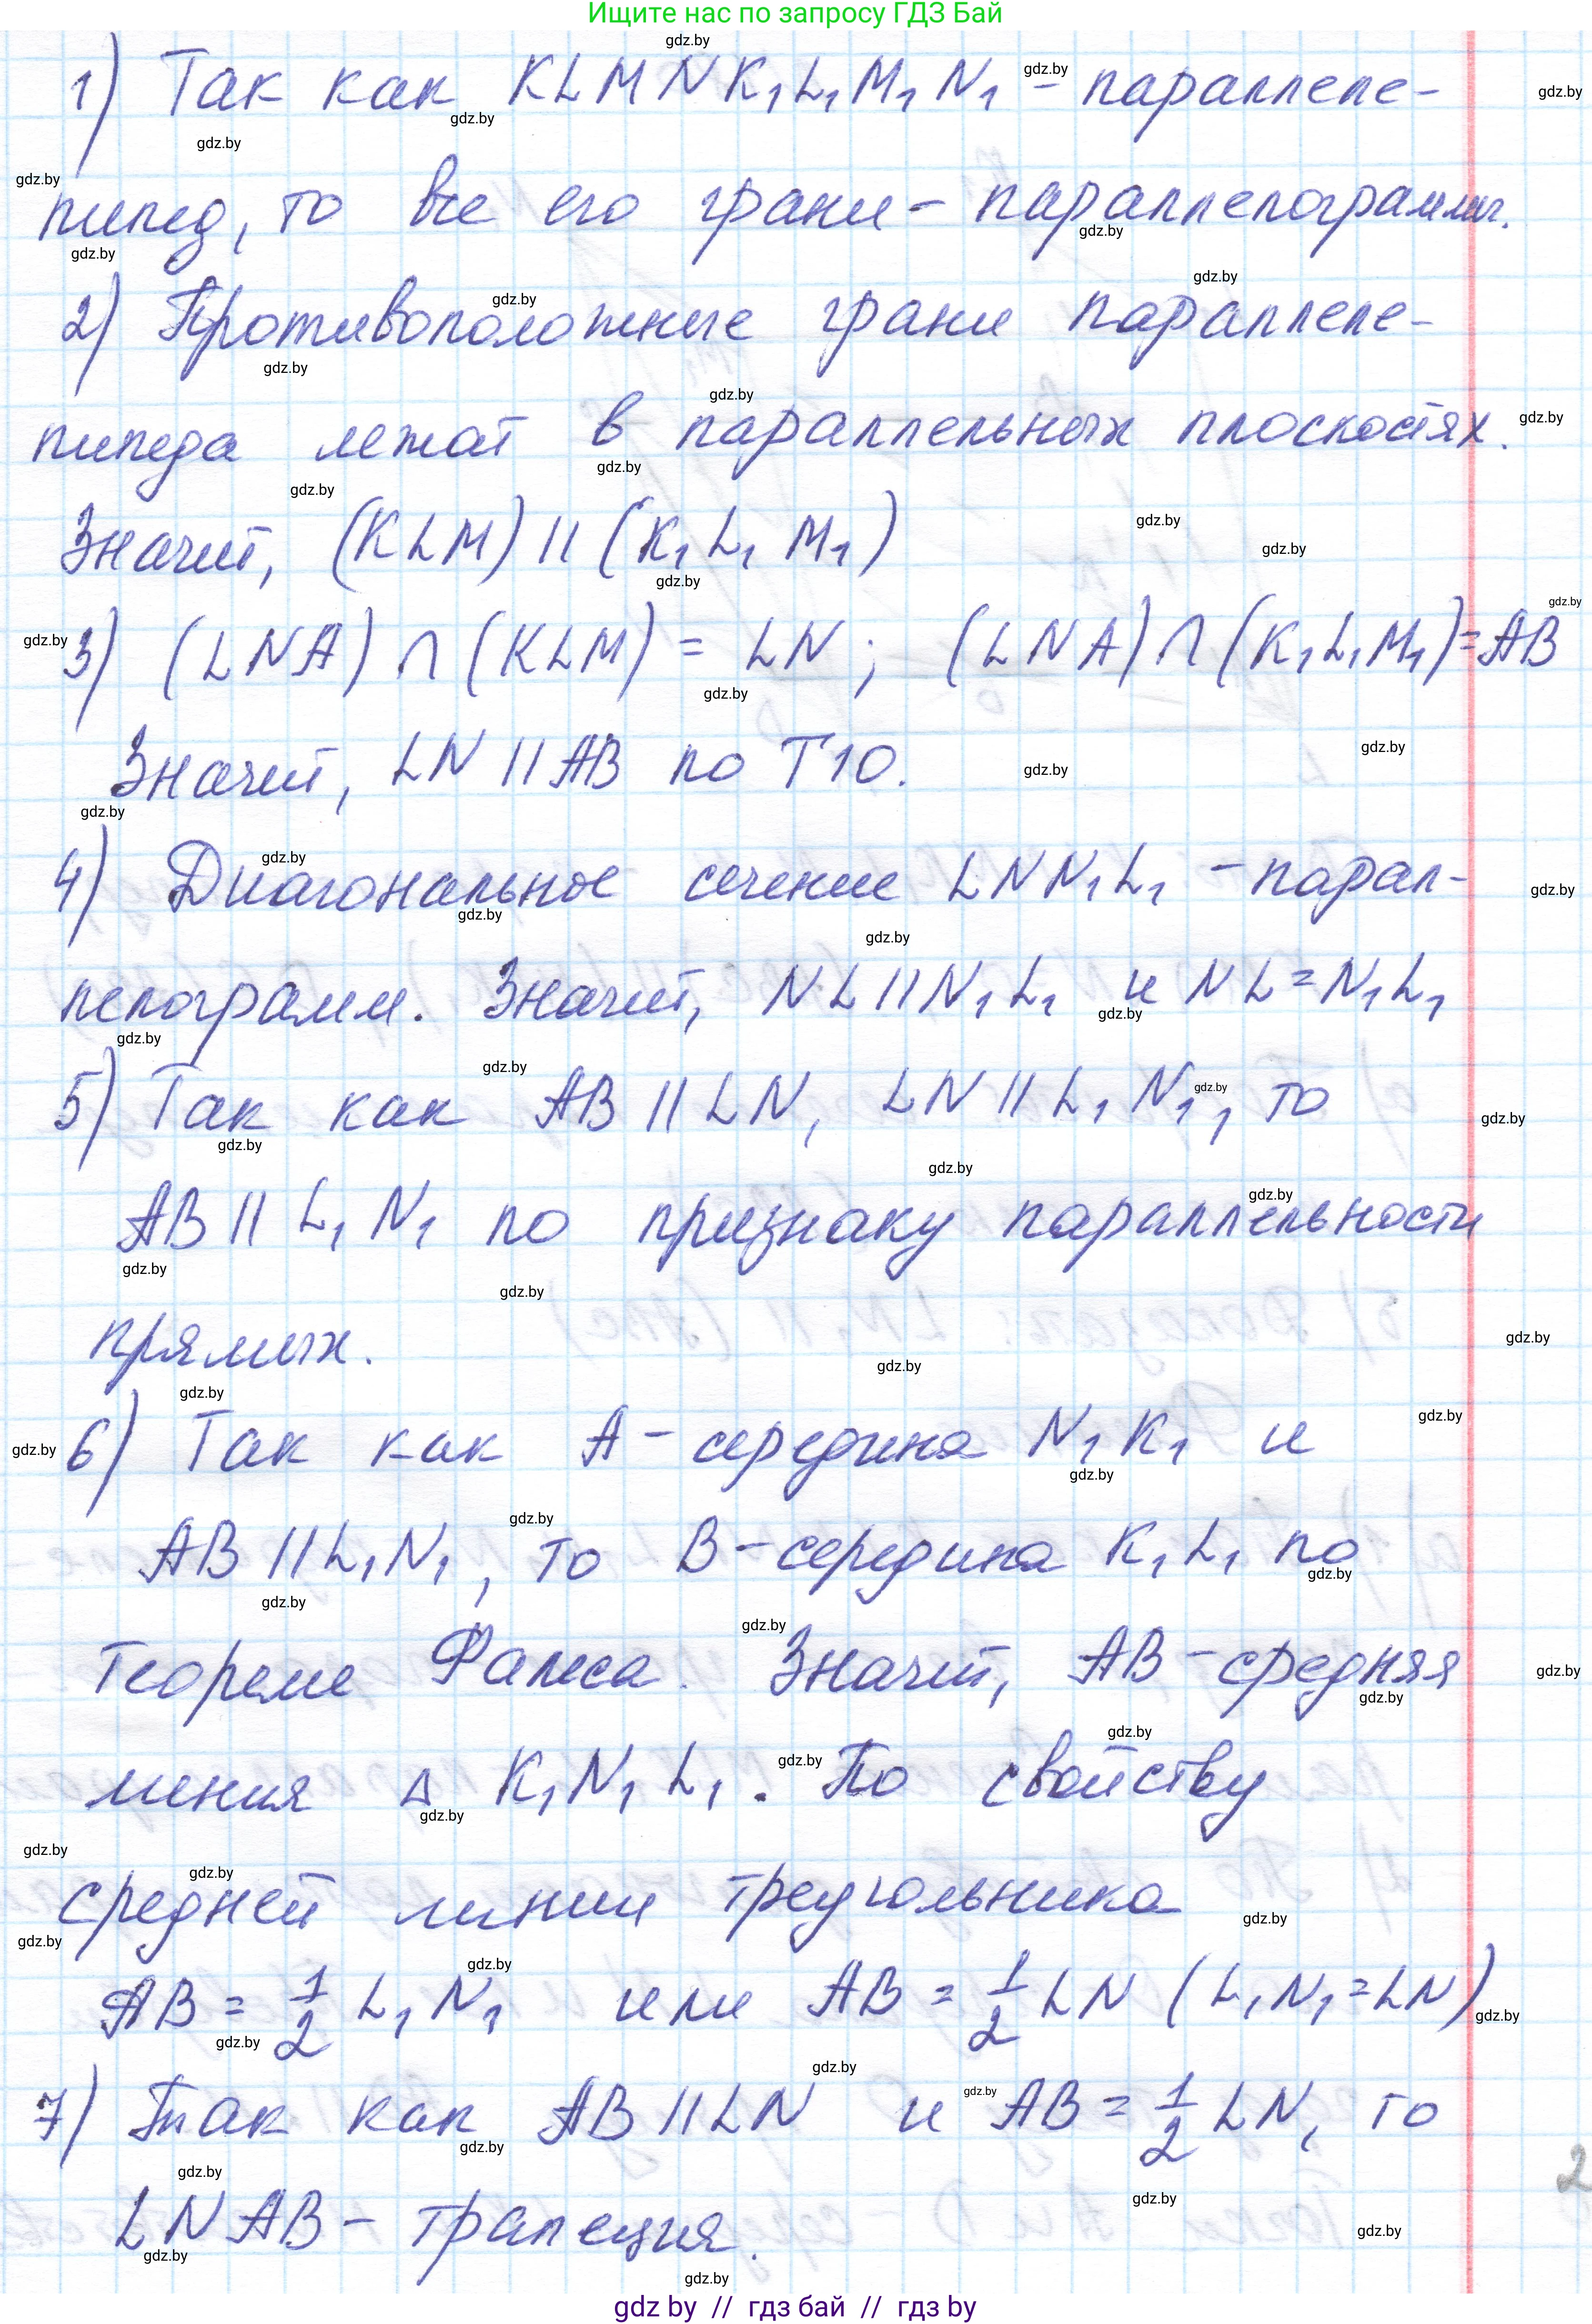 Ищите нас по запросу ГДЗ Бай
1) Так как KLMNK₁L₁M₁N₁ - параллеле-
пипед, то все его грани - параллелограммы.
2) Противоположные грани параллеле-
пипеда лежат в параллельных плоскостях.
Значит, (KLM) || (K₁L₁M₁)
3) (LNA) ∩ (KLM) = LN; (LNA) ∩ (K₁L₁M₁) = AB
Значит, LN || AB по Т10.
4) Диагональное сечение LNN₁L₁ - парал-
лелограмм. Значит, NL || N₁L₁ и NL = N₁L₁
5) Так как AB || LN, LN || L₁N₁, то
AB || L₁N₁ по признаку параллельности
прямых.
6) Так как A - середина N₁K₁ и
AB || L₁N₁, то B - середина K₁L₁ по
теореме Фалеса. Значит, AB - средняя
линия △ K₁N₁L₁. По свойству
средней линии треугольника
AB = 1/2 L₁N₁ или AB = 1/2 LN (L₁N₁ = LN)
7) Так как AB || LN и AB = 1/2 LN, то
LNAB - трапеция.
2
gdz by // гдз бай // гдз by